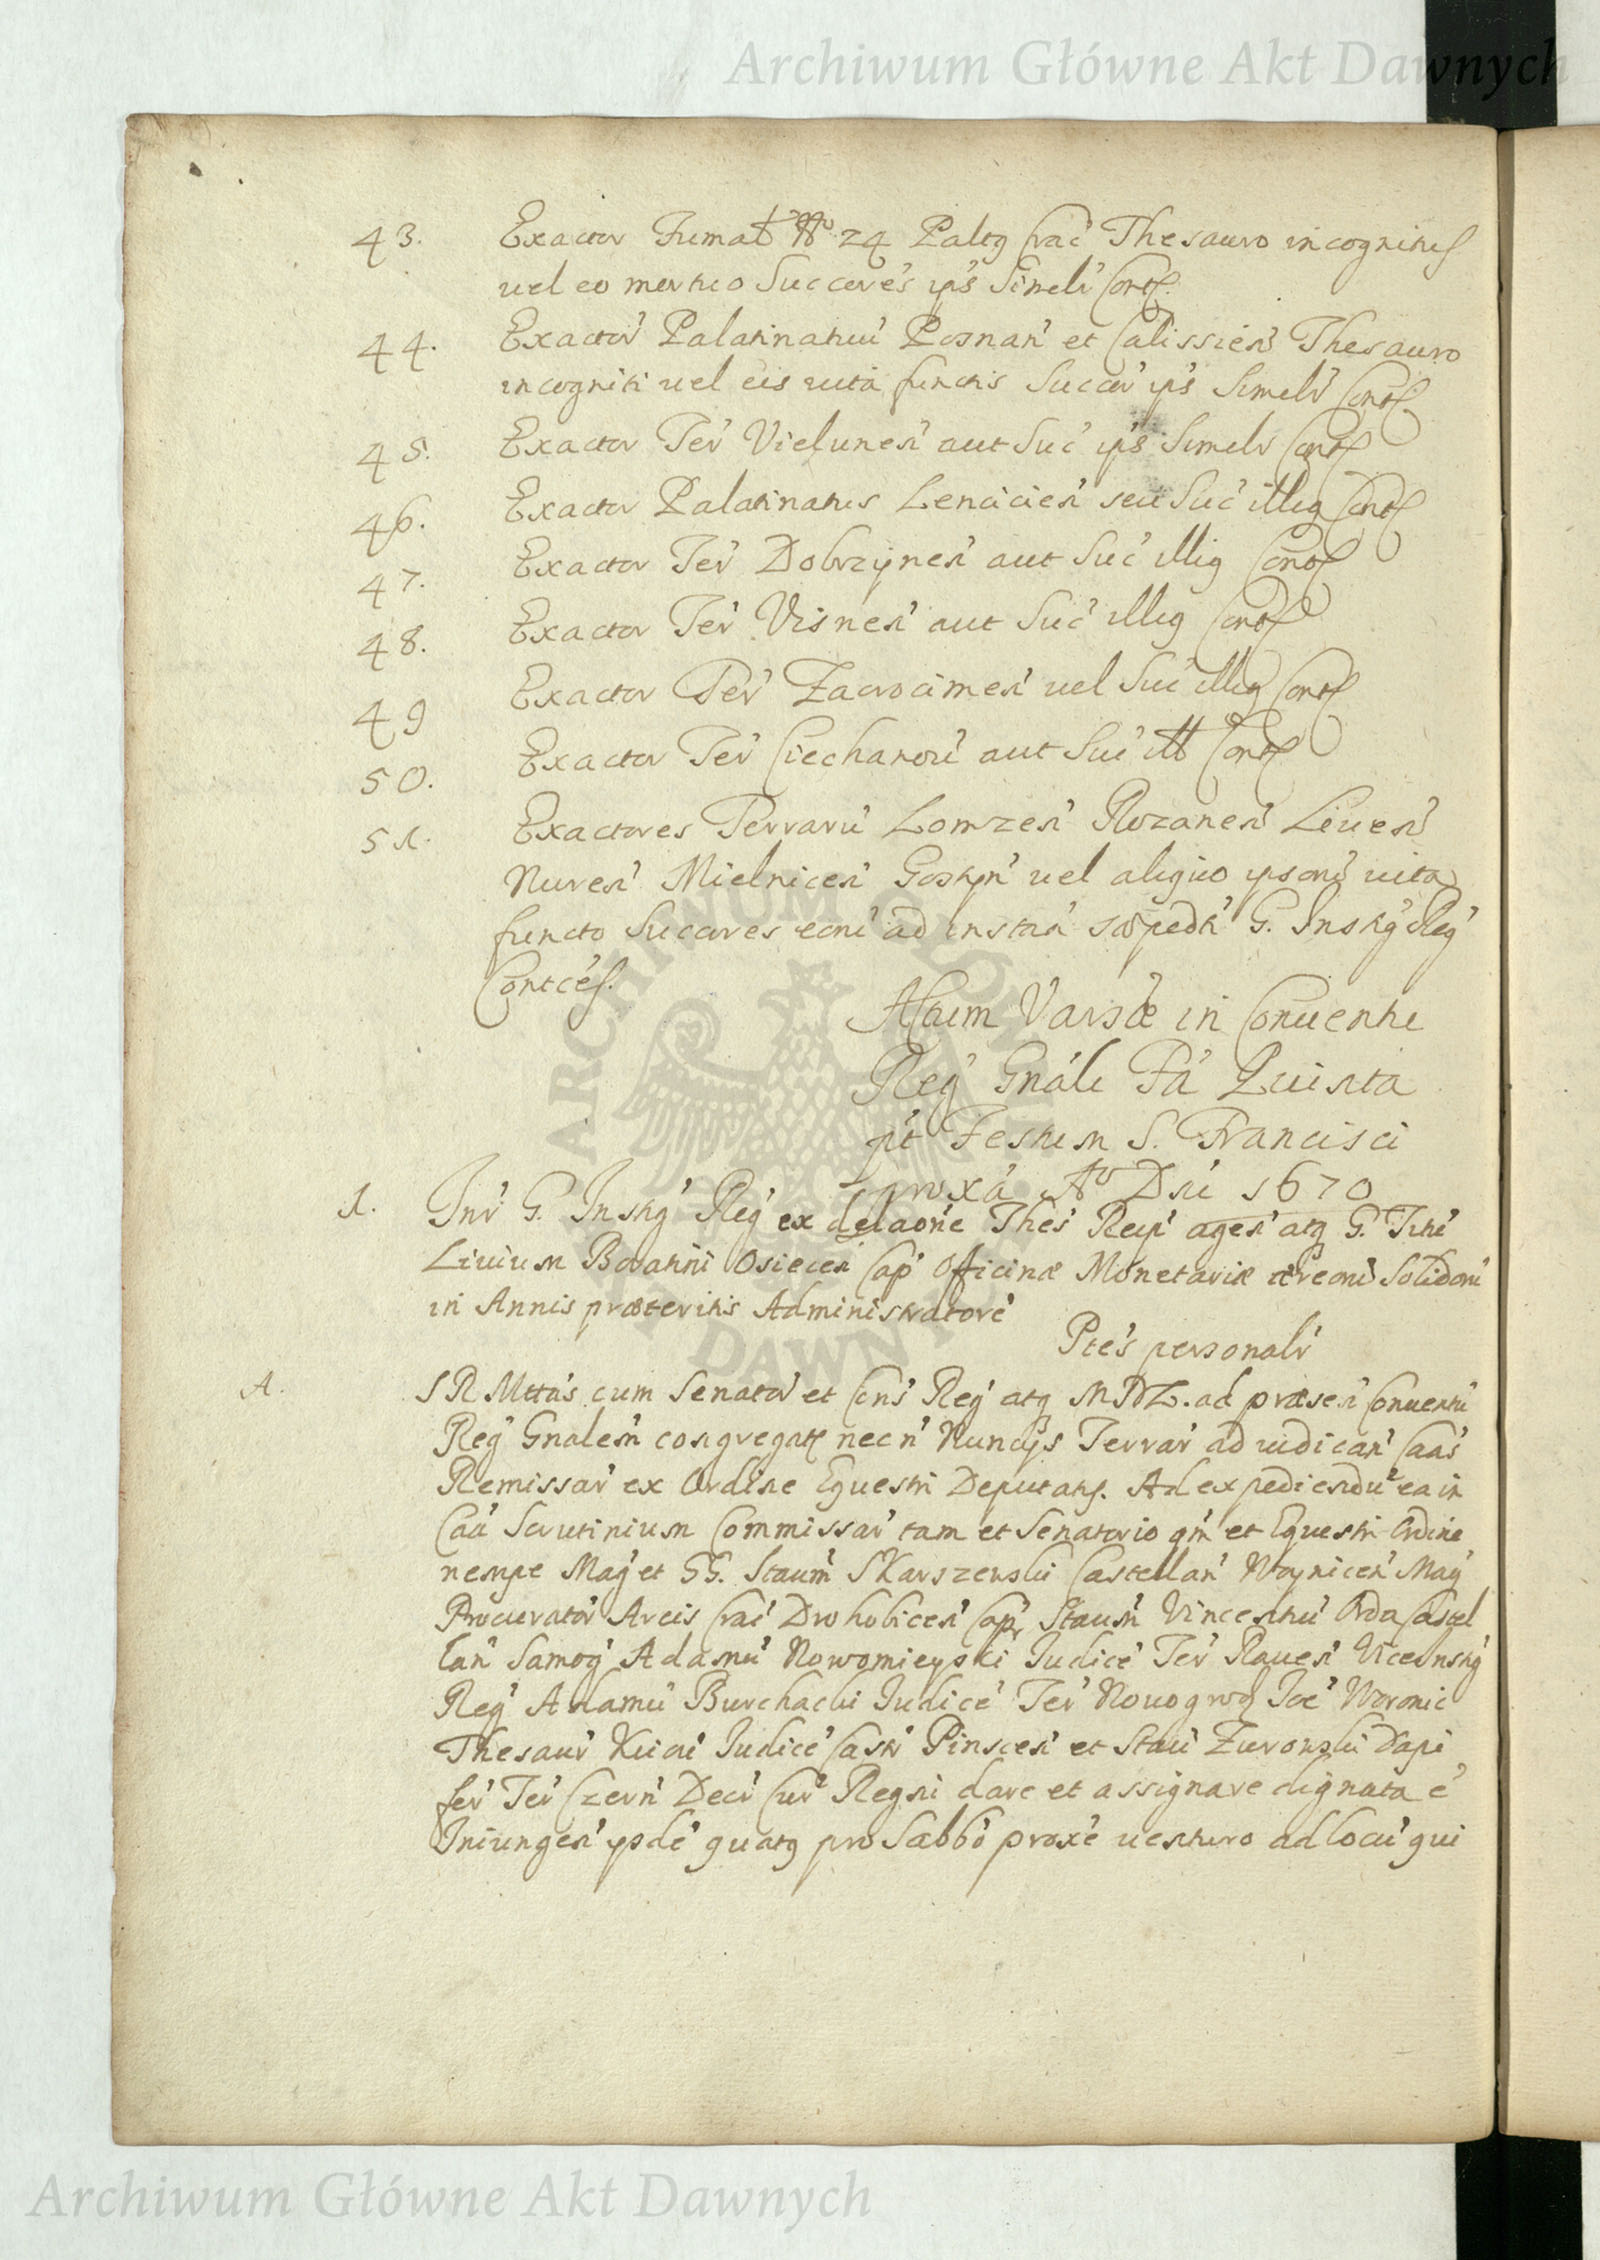 Archiwum Główne Akt Dawnych
43. Exactor Fumal' No 24 Paltg Crac' Thesauro incognitus
vel eo mortuo Succeres' yp's Simelr' Cont.
44. Exactor' Palatinatuu' Posnan' et Calissien' Thesauro
incogniti vel eis vita functis Succer' yp's Simelr' Cont
45. Exactor Ter' Vielunen' aut Suc' yp's Simelr Cont
46. Exactor Palatinatus Lencicien' seu Suc' illig Cont
47. Exactor Ter' Dobrzynen' aut Suc' illig Cont
48. Exactor Ter' Visnen' aut Suc' illig Cont
49 Exactor Ter' Zacrocimen' vel Suc' illig Cont
50. Exactor Ter' Ciechanou' aut Suc' ill Cont
51. Exactores Terraru' Lomzen' Rozanen' Liuen'
Nuren' Mielnicen' Gostyn' vel aliquo ypsoru' vita
functo Succores eoru' ad instan' sæpedti' G. Instig' Reg'
Contces.
Actum Varsæ in Conventu
Reg' Gnali Fa' Quinta
p't Festum S. Francisci
proxa' Ao Dni 1670
1. Inr' G. Instig' Reg' ex delaone Thes' Reip' agen' atq G. Titu'
Livium Boratini Osiecen' Cap' Officinæ Monetariæ æreoru' Solidoru'
in Annis præteritis Administratore'
Ptes personalr'
A. S R Mtta's cum Senator' et Cons' Reg' atq M D L. ad præsen' Conventu'
Reg' Gnalem' congregat necn' Nuncys Terrar' ad iudican' Caas'
Remissar' ex Ordine Equestri Deputatis. Ad expediendu' ea in
Caa' Scrutinium Commissar' tam et Senatorio qm' et Equestri Ordine
nempe Mag' et GG. Staum' Skarszewski Castellan' Woynicen' Mag'
Procurator' Arcis Crac' Drohobicen' Cap', Staum' Vincentiu' Orda Castel
lan' Samog' Adamu' Nowomieyski Iudice' Ter' Raven' Viceinstig'
Reg' Adamu' Burchacki Iudice' Ter' Novogrod Ioe' Woronic
Thesaur' Kiiov' Iudice' Castr' Pinscen' et Stau' Zurowski Dapi
fer' Ter' Czern' Decr' Cur' Regni dare et assignare dignata e'
Iniungen' ypsde' quatq pro Sabbo proxe' venturo ad locu' qui
Archiwum Główne Akt Dawnych